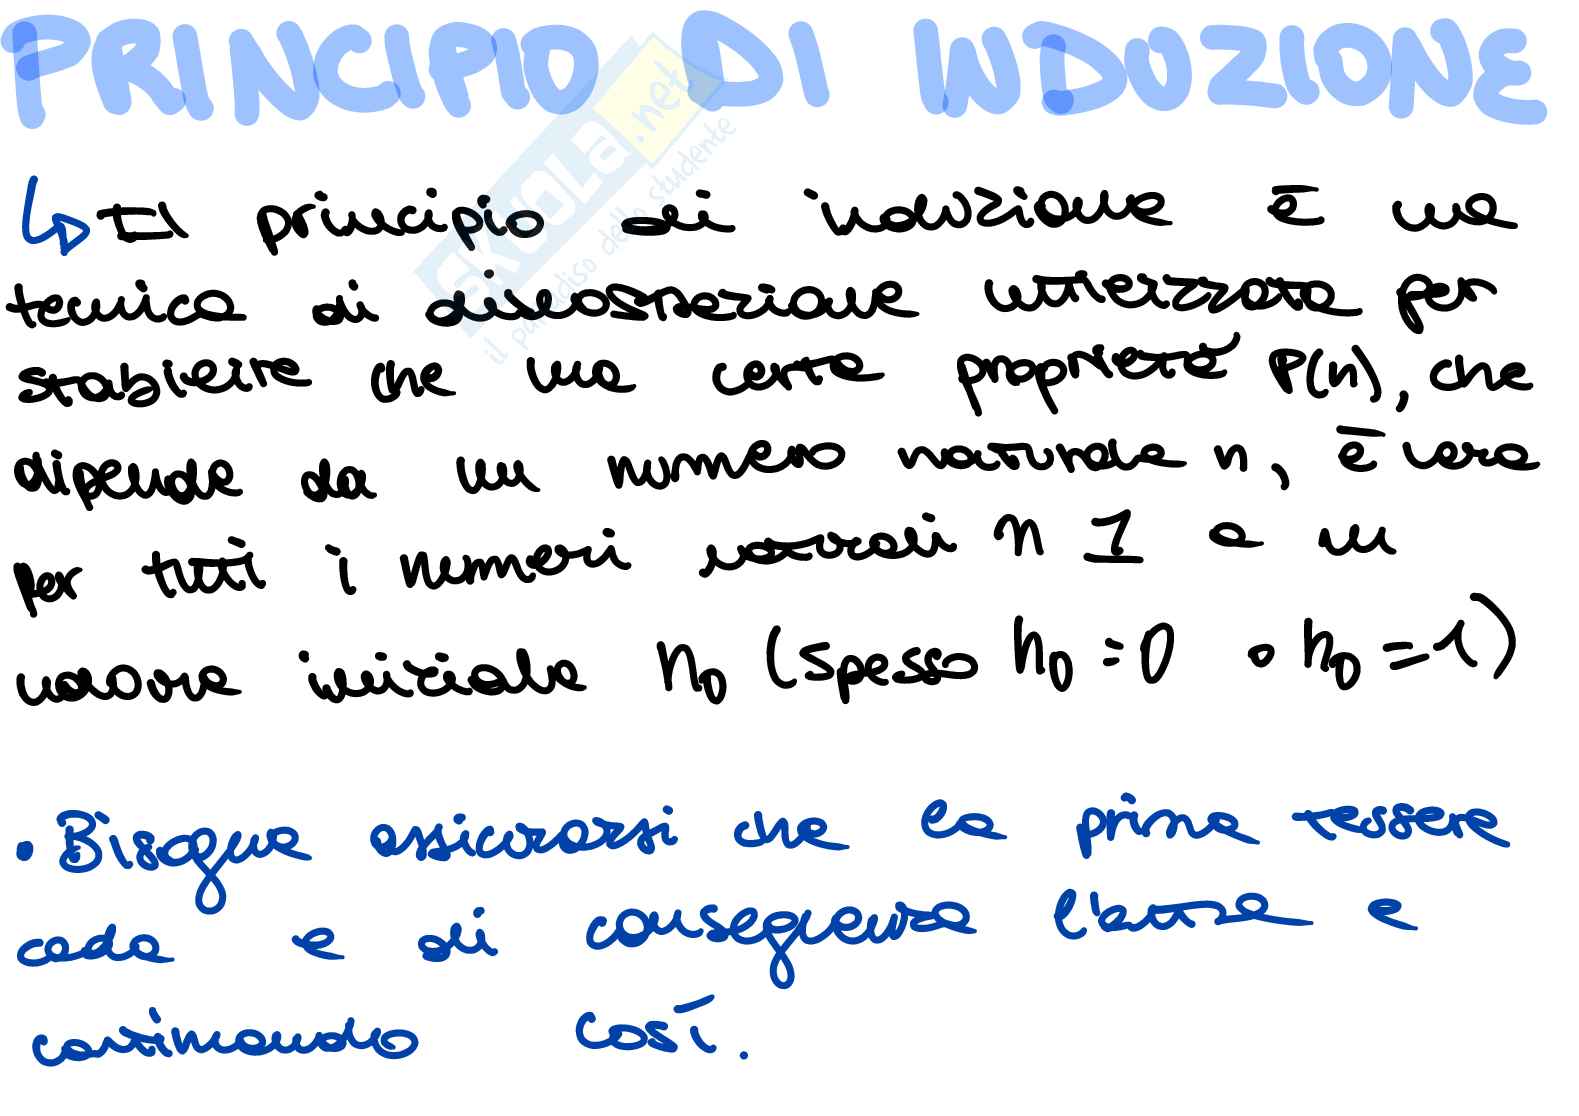 PRINCIPIO DI INDUZIONE
SKUOLA.net
il paradiso dello studente
↳ Il principio di induzione è una
tecnica di dimostrazione utilizzata per
stabilire che una certa proprietà P(n), che
dipende da un numero naturale n, è vera
per tutti i numeri naturali n 1 a un
valore iniziale n₀ (spesso n₀=0 o n₀=1)
• Bisogna assicurarsi che la prima tessere
cada e di conseguenza l'altra e
continuando così.